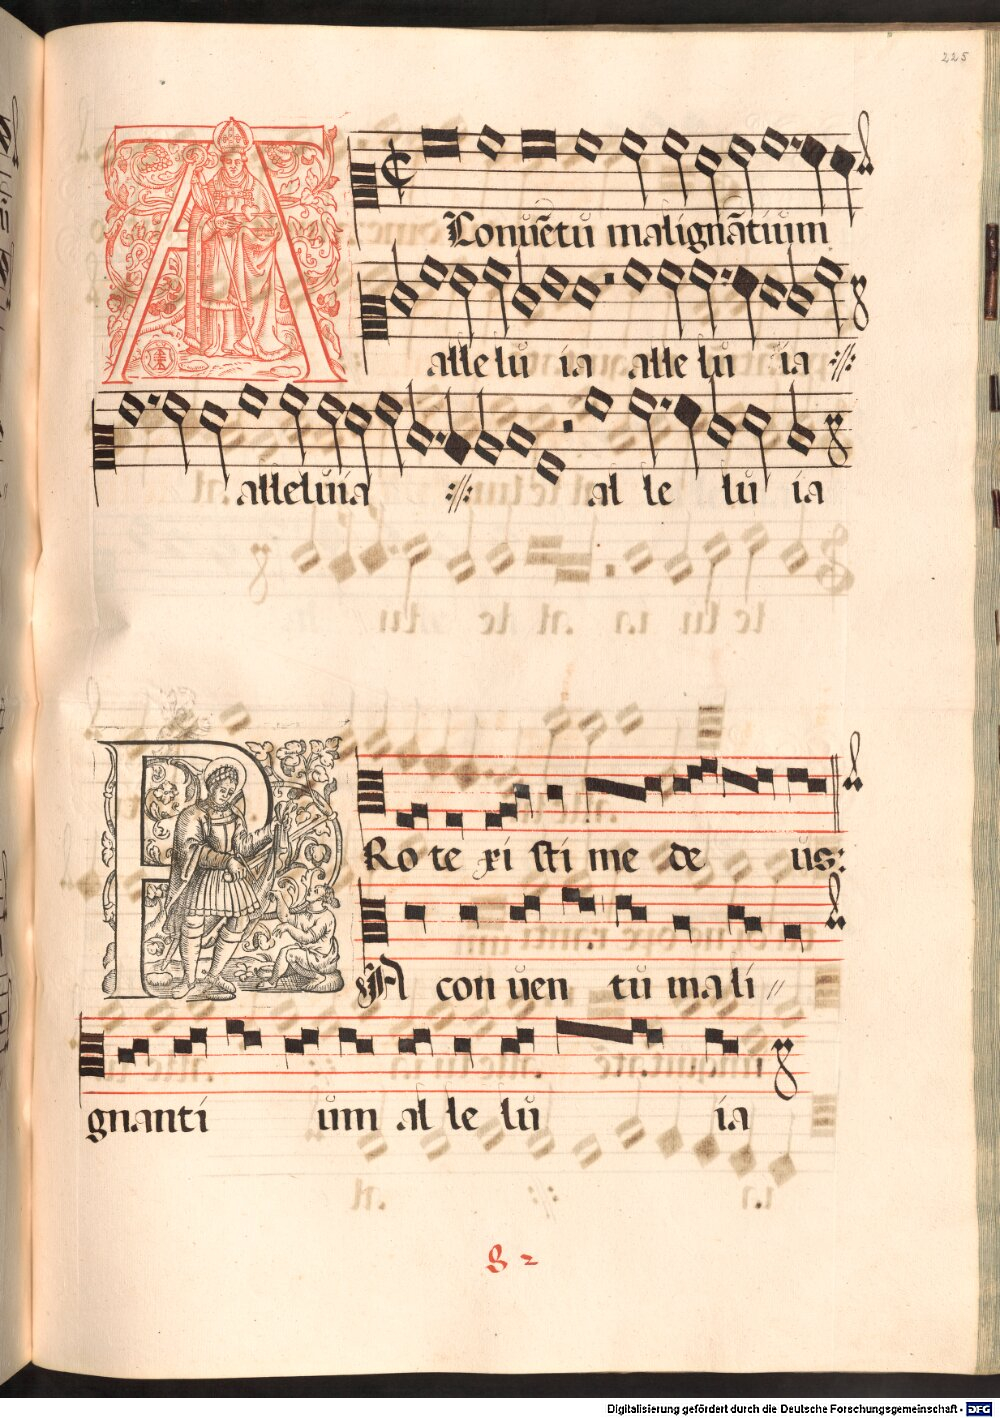 225
A Conuētu malignātium
alle lu ia alle lu ia ://:
alleluia ://: al le lu ia
P Ro te xi sti me de us:
A con uen tu ma li //
gnanti um al le lu ia
8 2
Digitalisierung gefördert durch die Deutsche Forschungsgemeinschaft - DFG